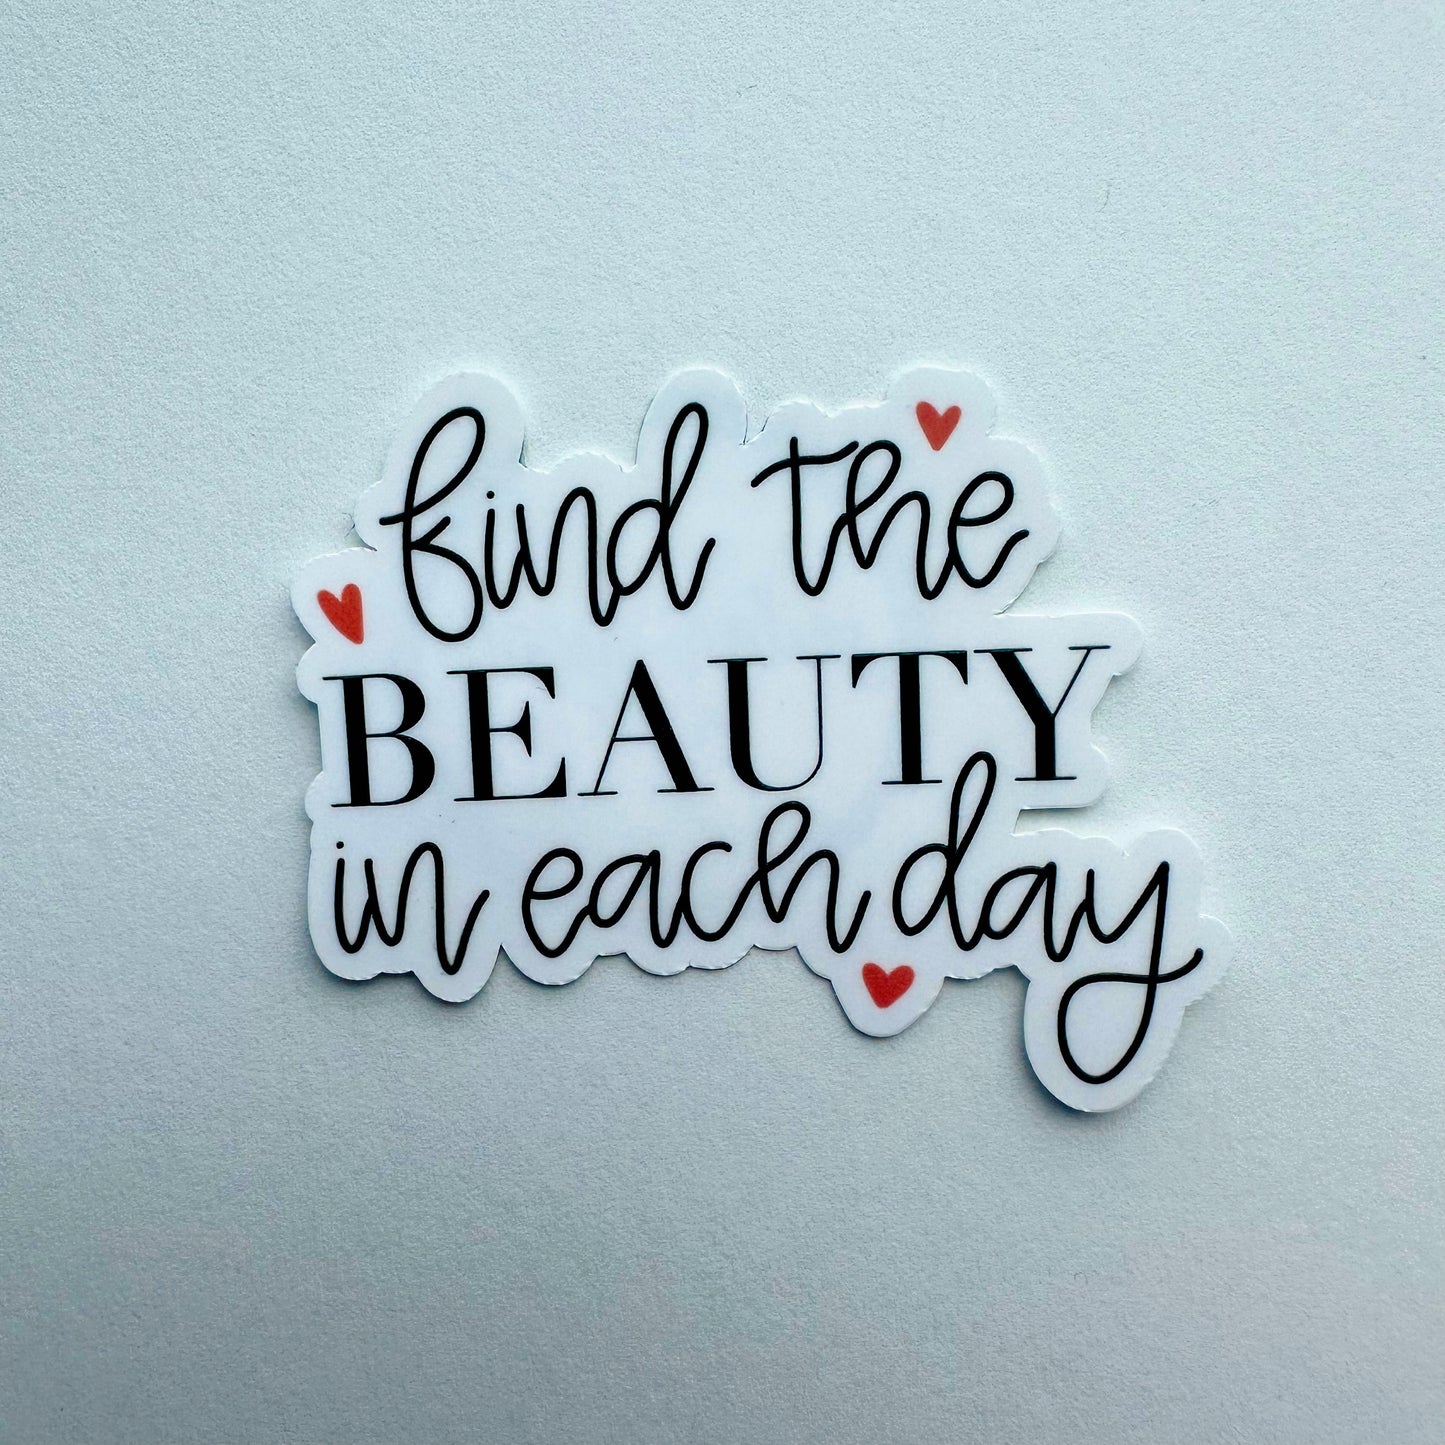 find the
BEAUTY
in each day